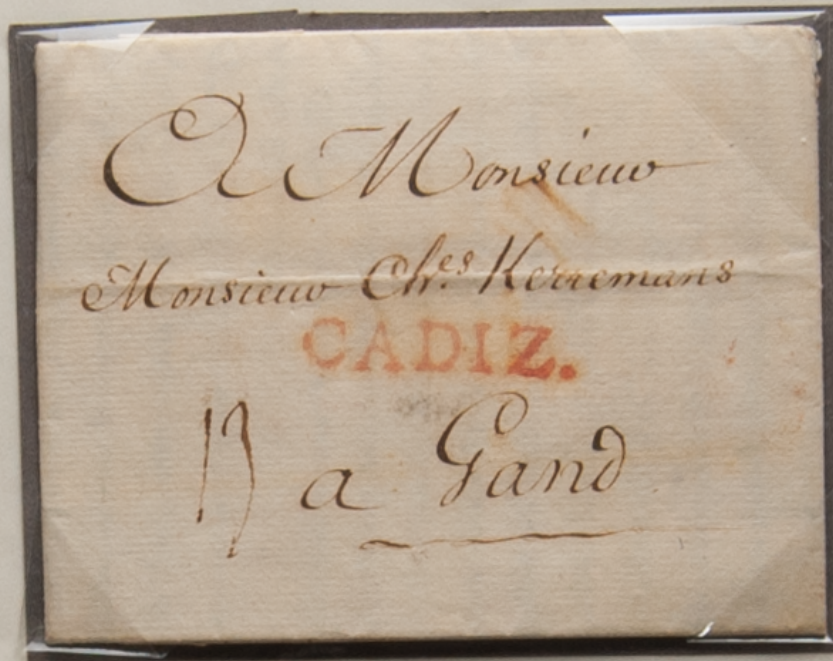 A Monsieur
Monsieur Ch.es Kerremans
CADIZ.
13 a Gand